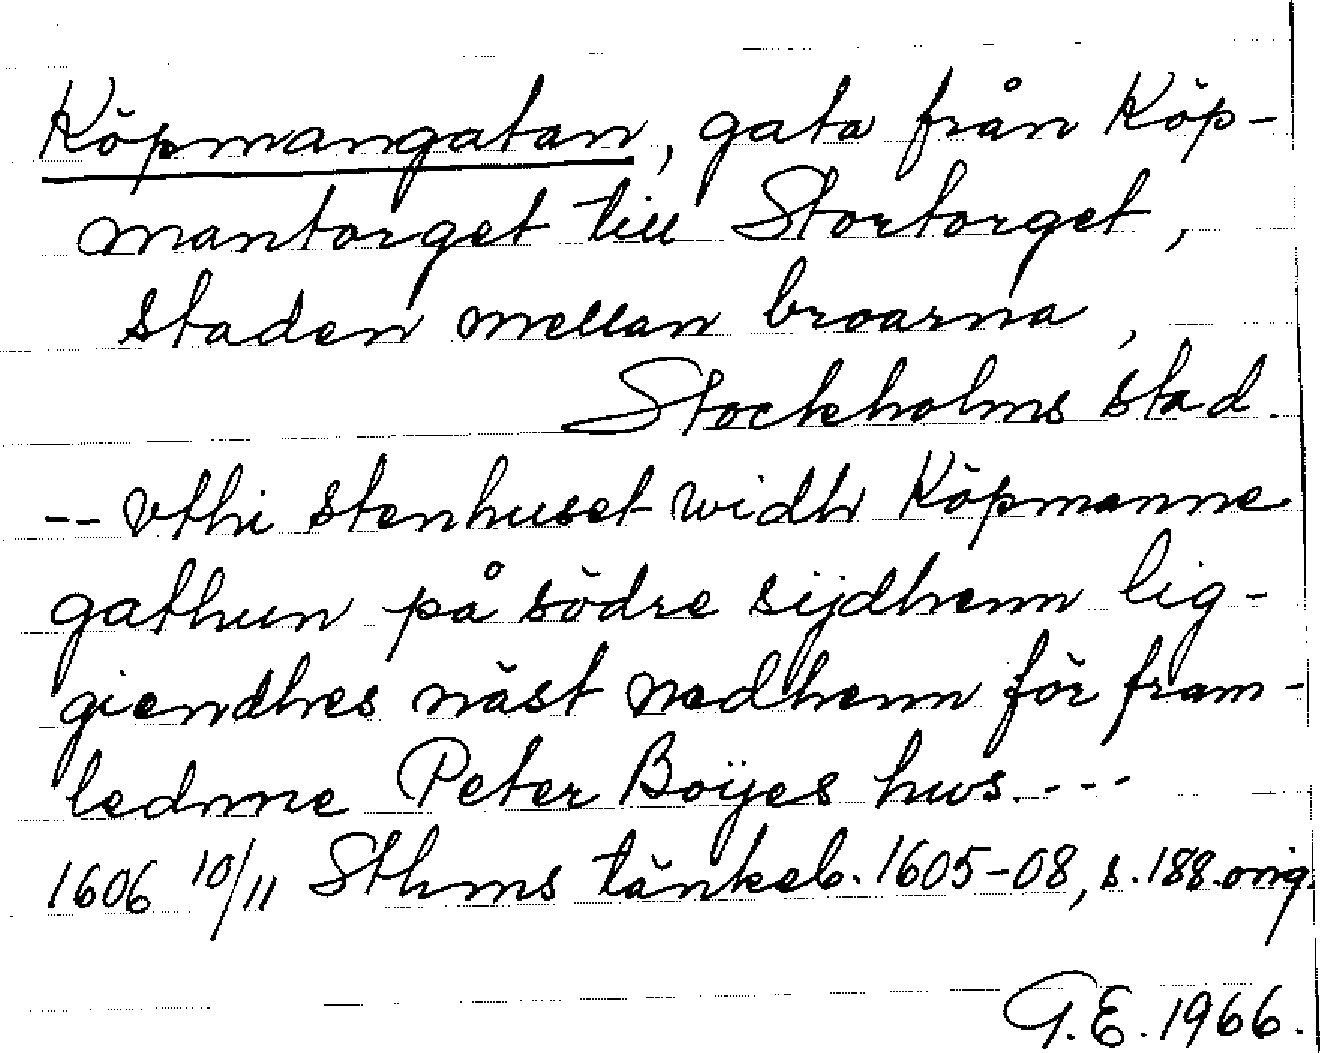 Köpmangatan, gata från Köp-
mantorget till Stortorget,
staden mellan broarna,
Stockholms stad.
-- vthi stenhuset widh Köpmanne
gathun på södre sijdhenn lig-
giendhes näst nedhenn för fram-
lednne Peter Boÿes hws. ---
1606 10/11 Sthms tänkeb. 1605-08, s. 188. orig.
G.E. 1966.